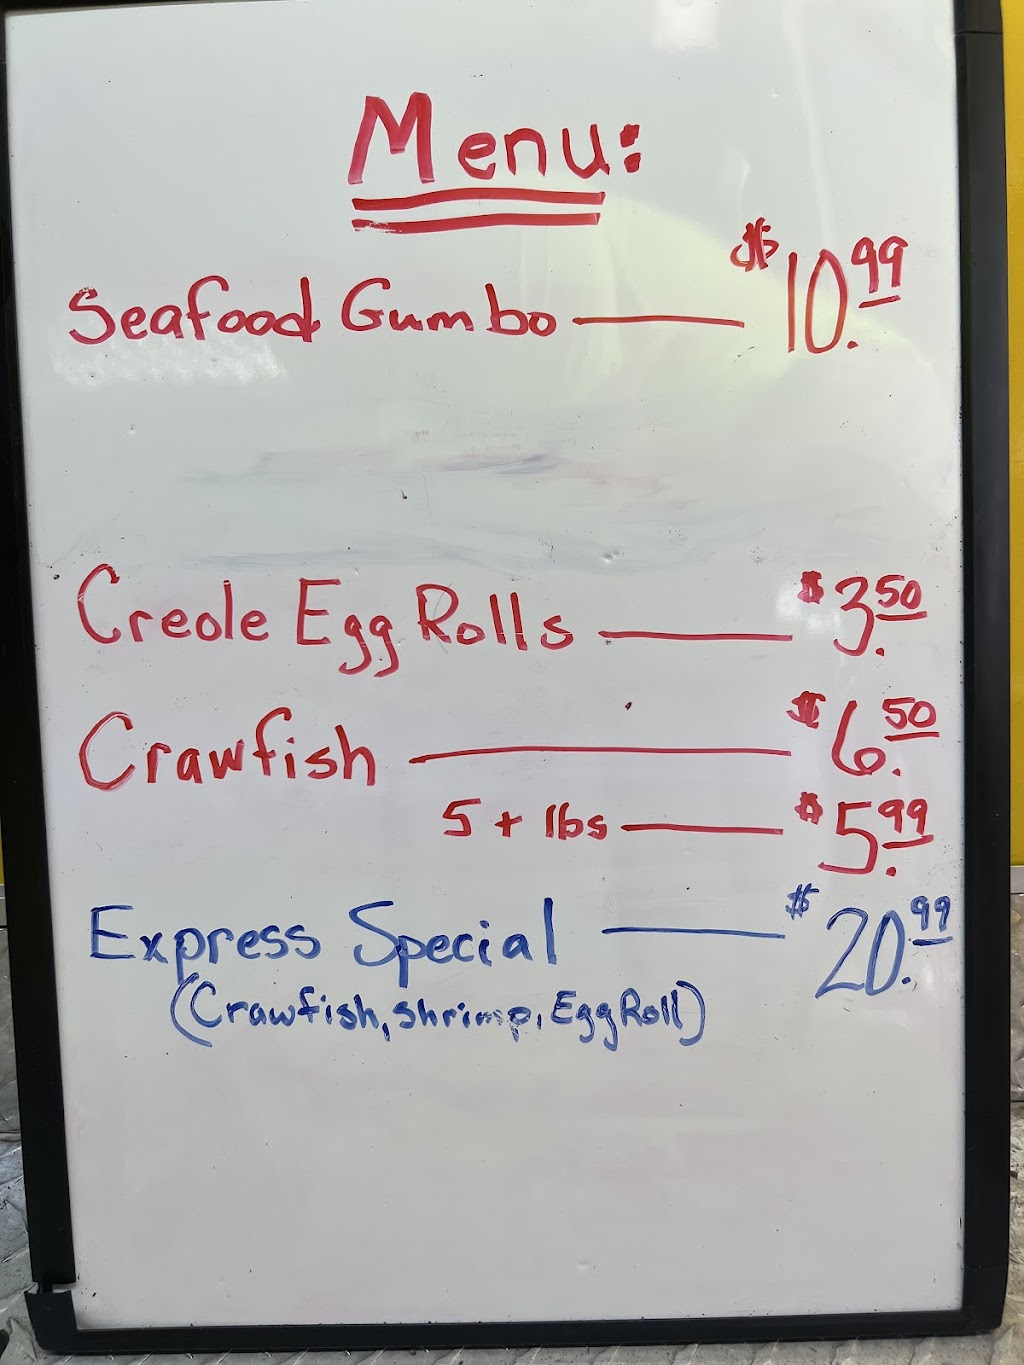 Menu:
Seafood Gumbo — $10.99
Creole Egg Rolls — $3.50
Crawfish — $6.50
5 + lbs — $5.99
Express Special — $20.99
(Crawfish, shrimp, Egg Roll)